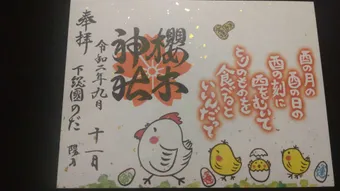 酉の月の
酉の日の
酉の刻に
酉をむいて
とりのたまごを
食べると
いいんだって
櫻木
神社
奉拝
令和二年九月
十一日
下総國のだ